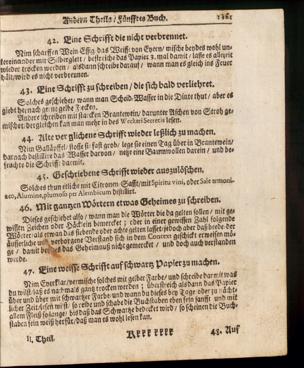 Andern Theils / Fünfftes Buch.
42. Eine Schrifft die nicht verbrennet.
Nim scharffen Wein Essig das Weiß von Eyern / mische beydes wohl und
mit Silberglett / bestreiche das Papier 3. mal damit / lasse es allezeit
wieder trocken werden / alsdann schreibe darauf / wann man es gleich ins Feuer
hält / wird es nicht verbrennen.
43. Eine Schrifft zu schreiben / die sich bald verliehret.
Solches geschiehet / wann man Scheid-Wasser in die Dinte thut / aber es
gibt hernach
Andere schreiben mit starcken Brantewein / darunter Aschen von Stroh ge-
mischet / dergleichen kan man mehr in des Weckeri Secretis lesen.
44. Alte verglichene Schrifft wieder leßlich zu machen.
Nim Galläpffel / stosse sie fast grob / lege sie einen Tag über in Brantewein /
darnach distillire das Wasser darvon / netze eine Baumwollen darein / und be-
feuchte die Schrifft darmit.
45. Geschriebene Schriffte wieder auszulöschen.
Solches thun etliche mit Citronen Safft / mit Spiritu vini, oder Sale armoni-
aco, Alumine plumoso per Alembicum distillirt.
46. Mit gantzen Wörtern etwas Geheimes zu schreiben.
Dieses geschiehet also / wann man die Wörter die da gelten sollen / mit ge-
wissen Zeichen oder Häcklein bemercket; oder in einer gewissen Zahl folgende
Wörter als etwan das siebende oder achte gelten lasset / jedoch aber daß der
äusserliche und verborgene Verstand sich in dem Context geschickt
damit das Geheimnuß nicht gemercket / und doch auch verstanden
werde.
47. Eine weisse Schrifft auf schwartz Papier zu machen.
Nim Eyerklar / vermische solches mit gelber Farbe / und schreibe darmit was
du wilst / laß es nachmals gantz trocken werden; überstreich alsdann das Papier
über und über mit schwartzer Farbe und wann du dieses bey Tage oder zu nächt-
licher Zeit lesen wilst / so reibe und schabe die Buchstaben eben fein sanfft und mit
allem Fleiß so lange / biß daß das Schwartze bedecket wird / so scheinen die Buch-
staben fein weiß herfür / daß man es wohl lesen kan.
II. Theil. Rrrr rrrr 48. Auf